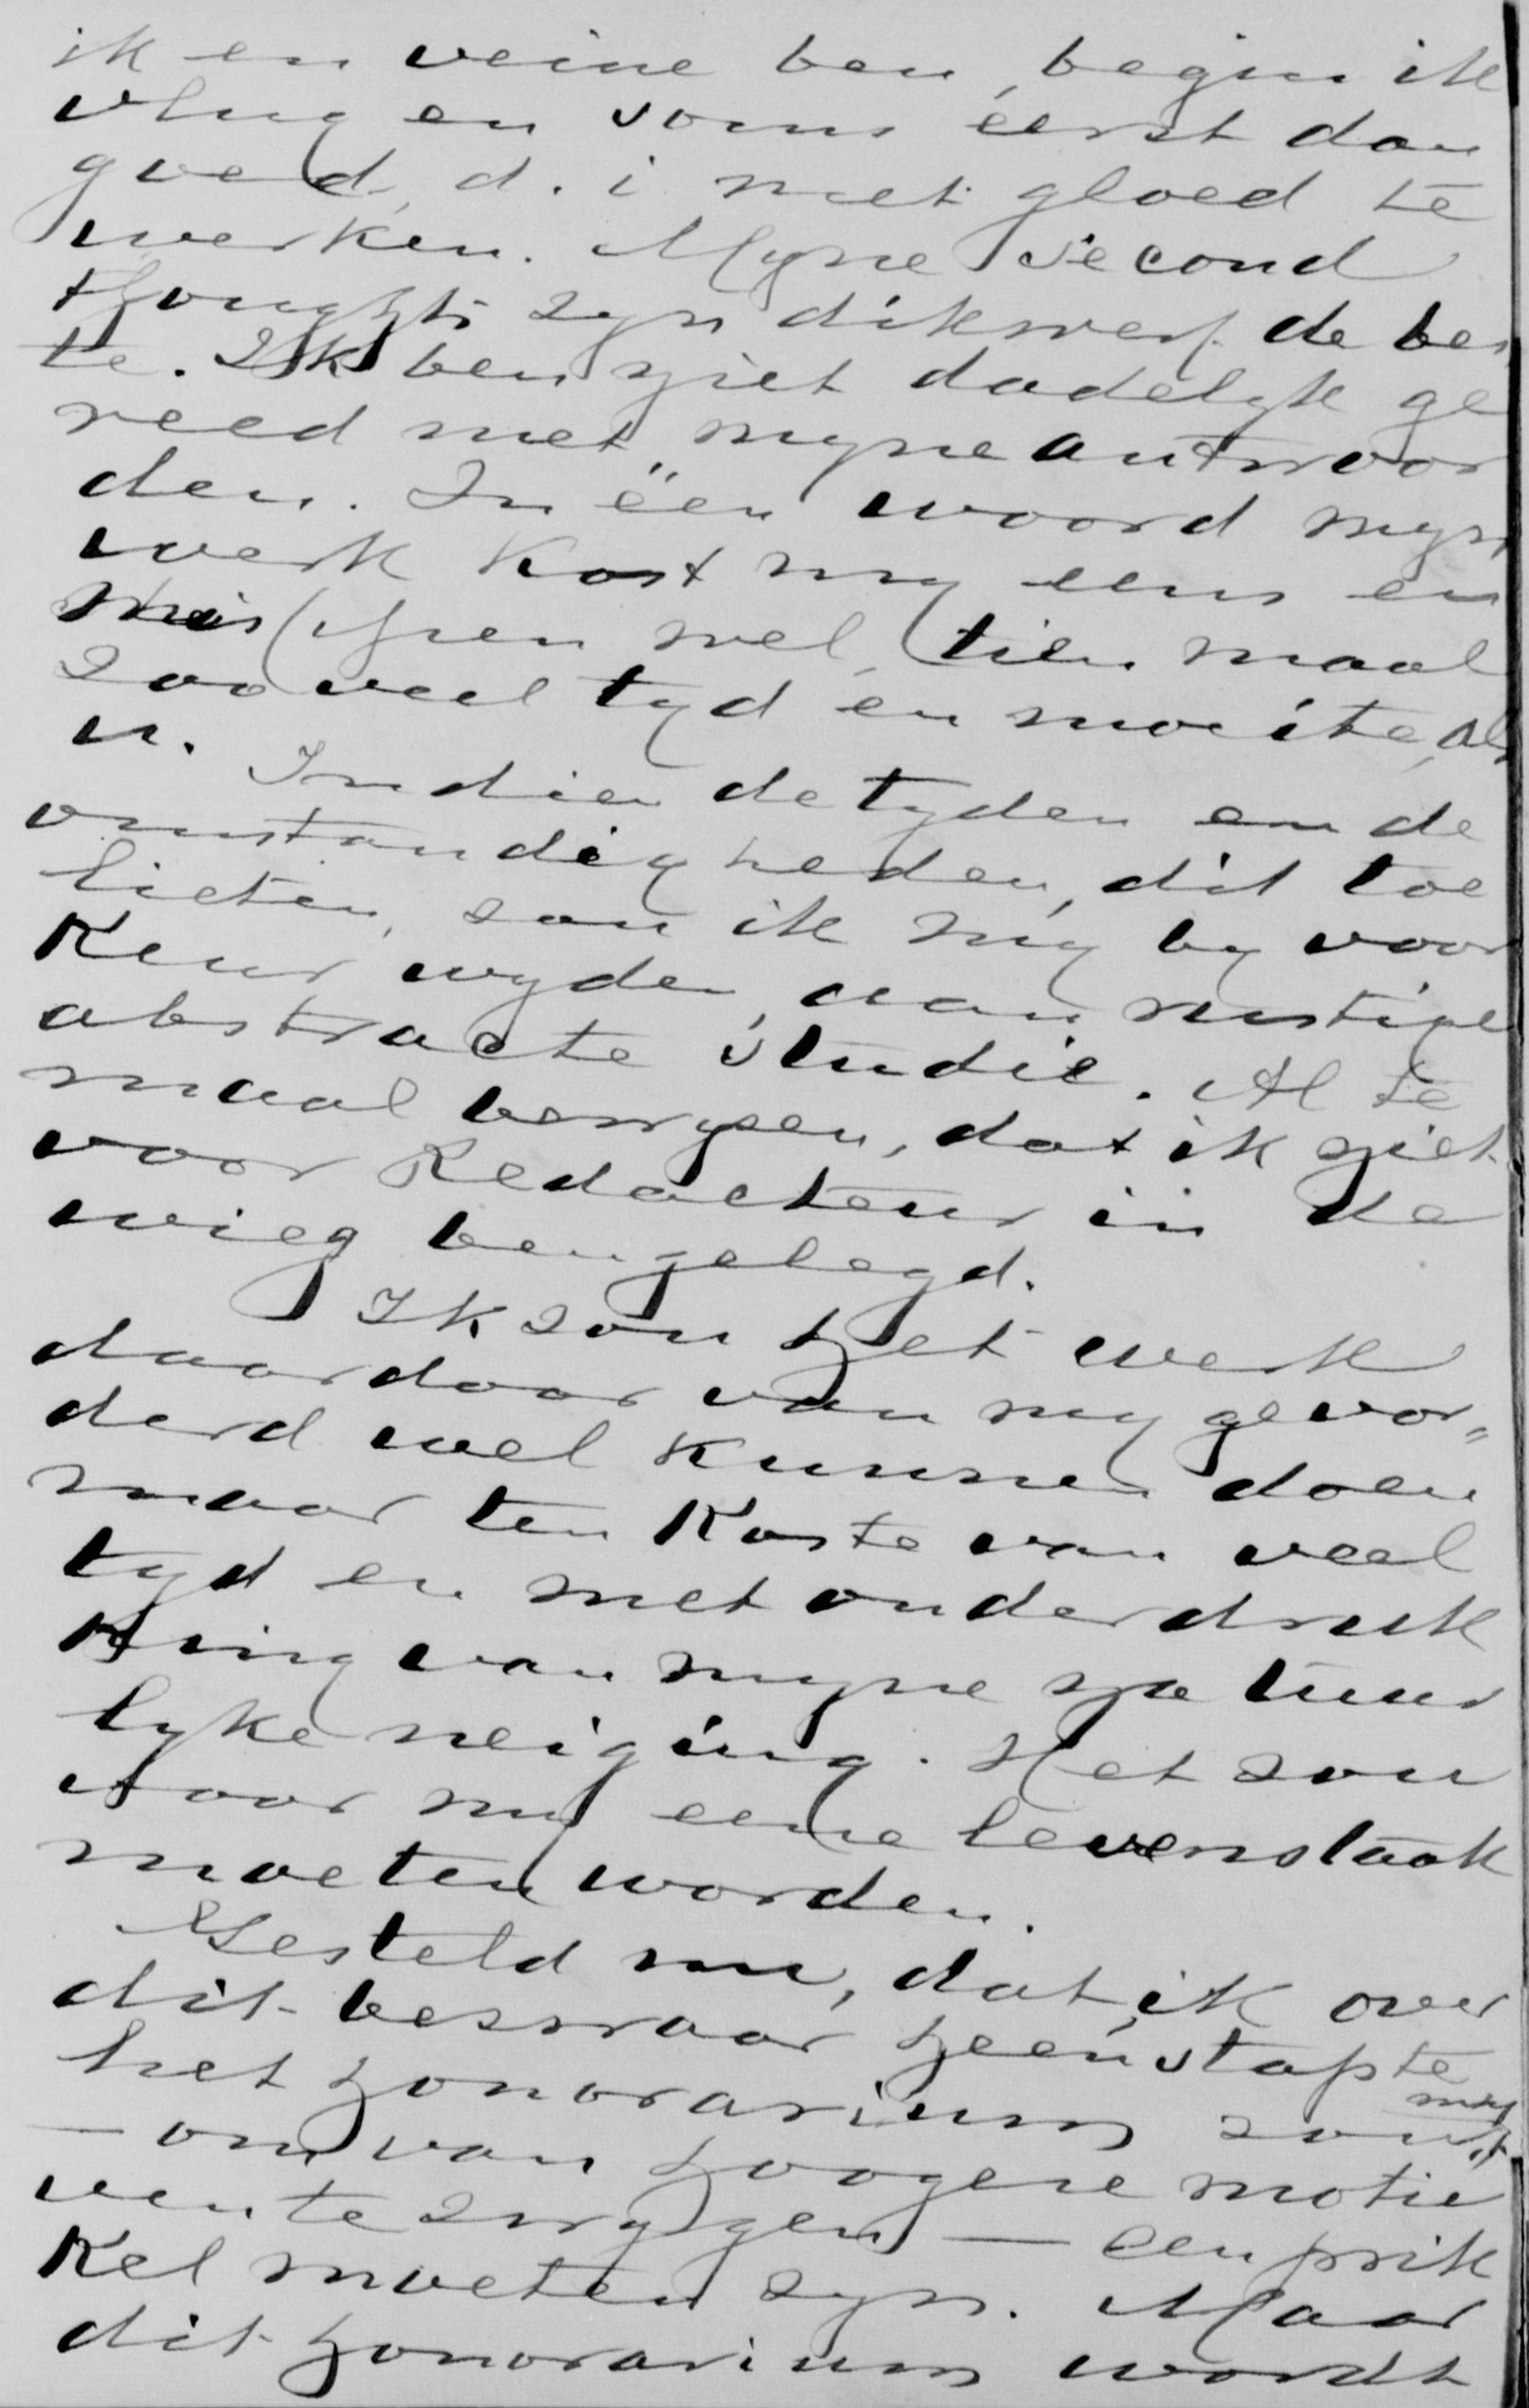 ik en veine ben, begin ik
vlug en soms eerst dan
goed, d. i. met gloed te
werken. Myne second
thoughts zyn dikwerf de bes
te. Ik ben niet dadelyk ge
reed met myne antwoor
den. In één woord myn
werk kost my eens en
misschien wel tien maal
zooveel tyd en moeite, als
u.
Indien de tyden en de
omstandigheden, dit toe
lieten, zou ik my by voor
keur wyden, aan rustige
abstracte studie. Al te
maal bewyzen, dat ik niet
voor Redacteur in de
wieg ben gelegd.
Ik zou het werk
daardoor van my gevor„
derd wel kunnen doen
maar ten koste van veel
tyd en met onderdruk
king van myne natuur
lyke neiging. Het zou
voor my eene levenstaak
moeten worden.
Gesteld nu, dat ik over
dit bezwaar heenstapte
het honorarium zou my
— om van hoogere motie
ven te zwygen — een prik
kel moeten zyn. Maar
dit honorarium wordt